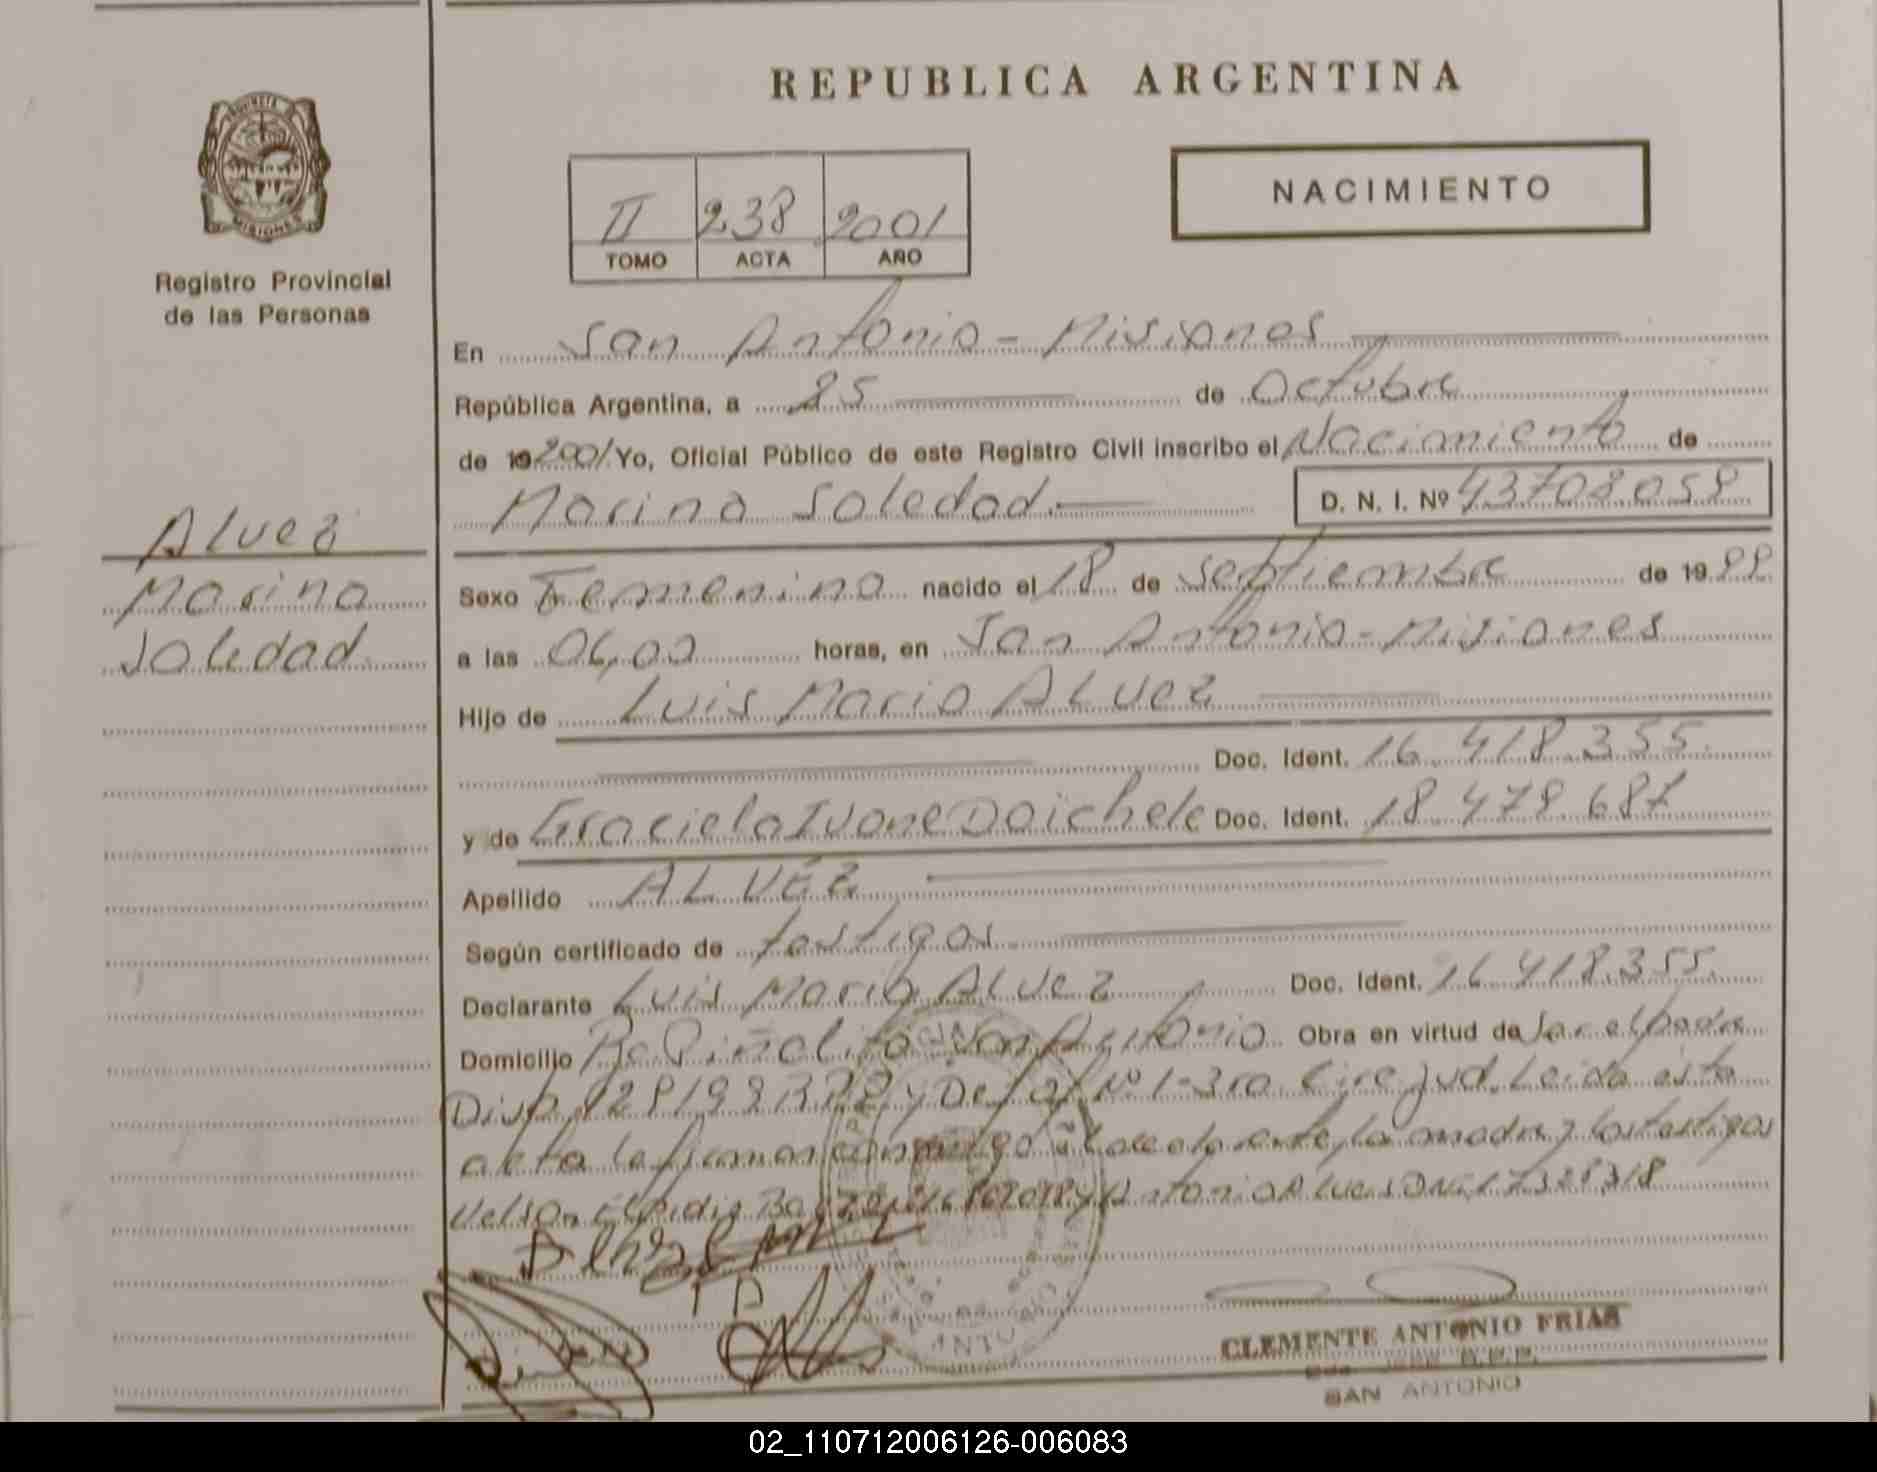 REPUBLICA ARGENTINA
NACIMIENTO
II 238 2001
TOMO ACTA AÑO
MISIONES
Registro Provincial
de las Personas
Alvez
Marina
Soledad
En San Antonio - Misiones
República Argentina, a 25 de Octubre
de 19 2001 Yo, Oficial Público de este Registro Civil inscribo el Nacimiento de
Marina Soledad D. N. I. Nº 43708059
Sexo Femenino nacido el 18 de Septiembre de 19 99
a las 06,00 horas, en San Antonio - Misiones
Hijo de Luis Mario ALVez
Doc. Ident. 16.418.355.
y de Graciela Ivone Daichele Doc. Ident. 18.479.687
Apellido ALVEZ
Según certificado de testigos
Declarante Luis Mario ALVez Doc. Ident. 16.418.355.
Domicilio San Antonio Obra en virtud de Ser el padre
Disp. y Def. Of. Nº 1-3ra Circ. Jud. Leída esta
acta la firman conmigo el declarante, la madre y los testigos
Nelson Elpidio y Antonio Alves DNI 17328318
CLEMENTE ANTONIO FRIAS
SAN ANTONIO
02_110712006126-006083